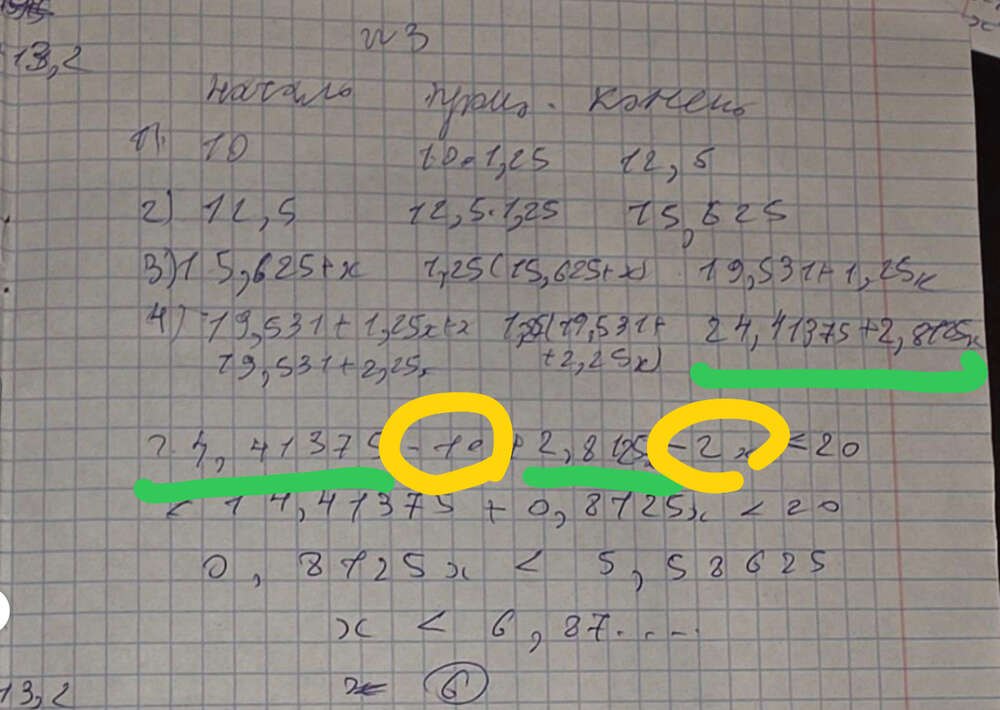 13,2
№3
начало проц. конец
1) 10 10·1,25 12,5
2) 12,5 12,5·1,25 15,625
3) 15,625+x 1,25(15,625+x) 19,531+1,25x
4) 19,531+1,25x+x 1,25(19,531+ 24,41375+2,8125x
19,531+2,25x +2,25x)
24,41375-10+2,8125x-2x<20
14,41375+0,8125x<20
0,8125x<5,58625
x<6,87....
x 6
13,2